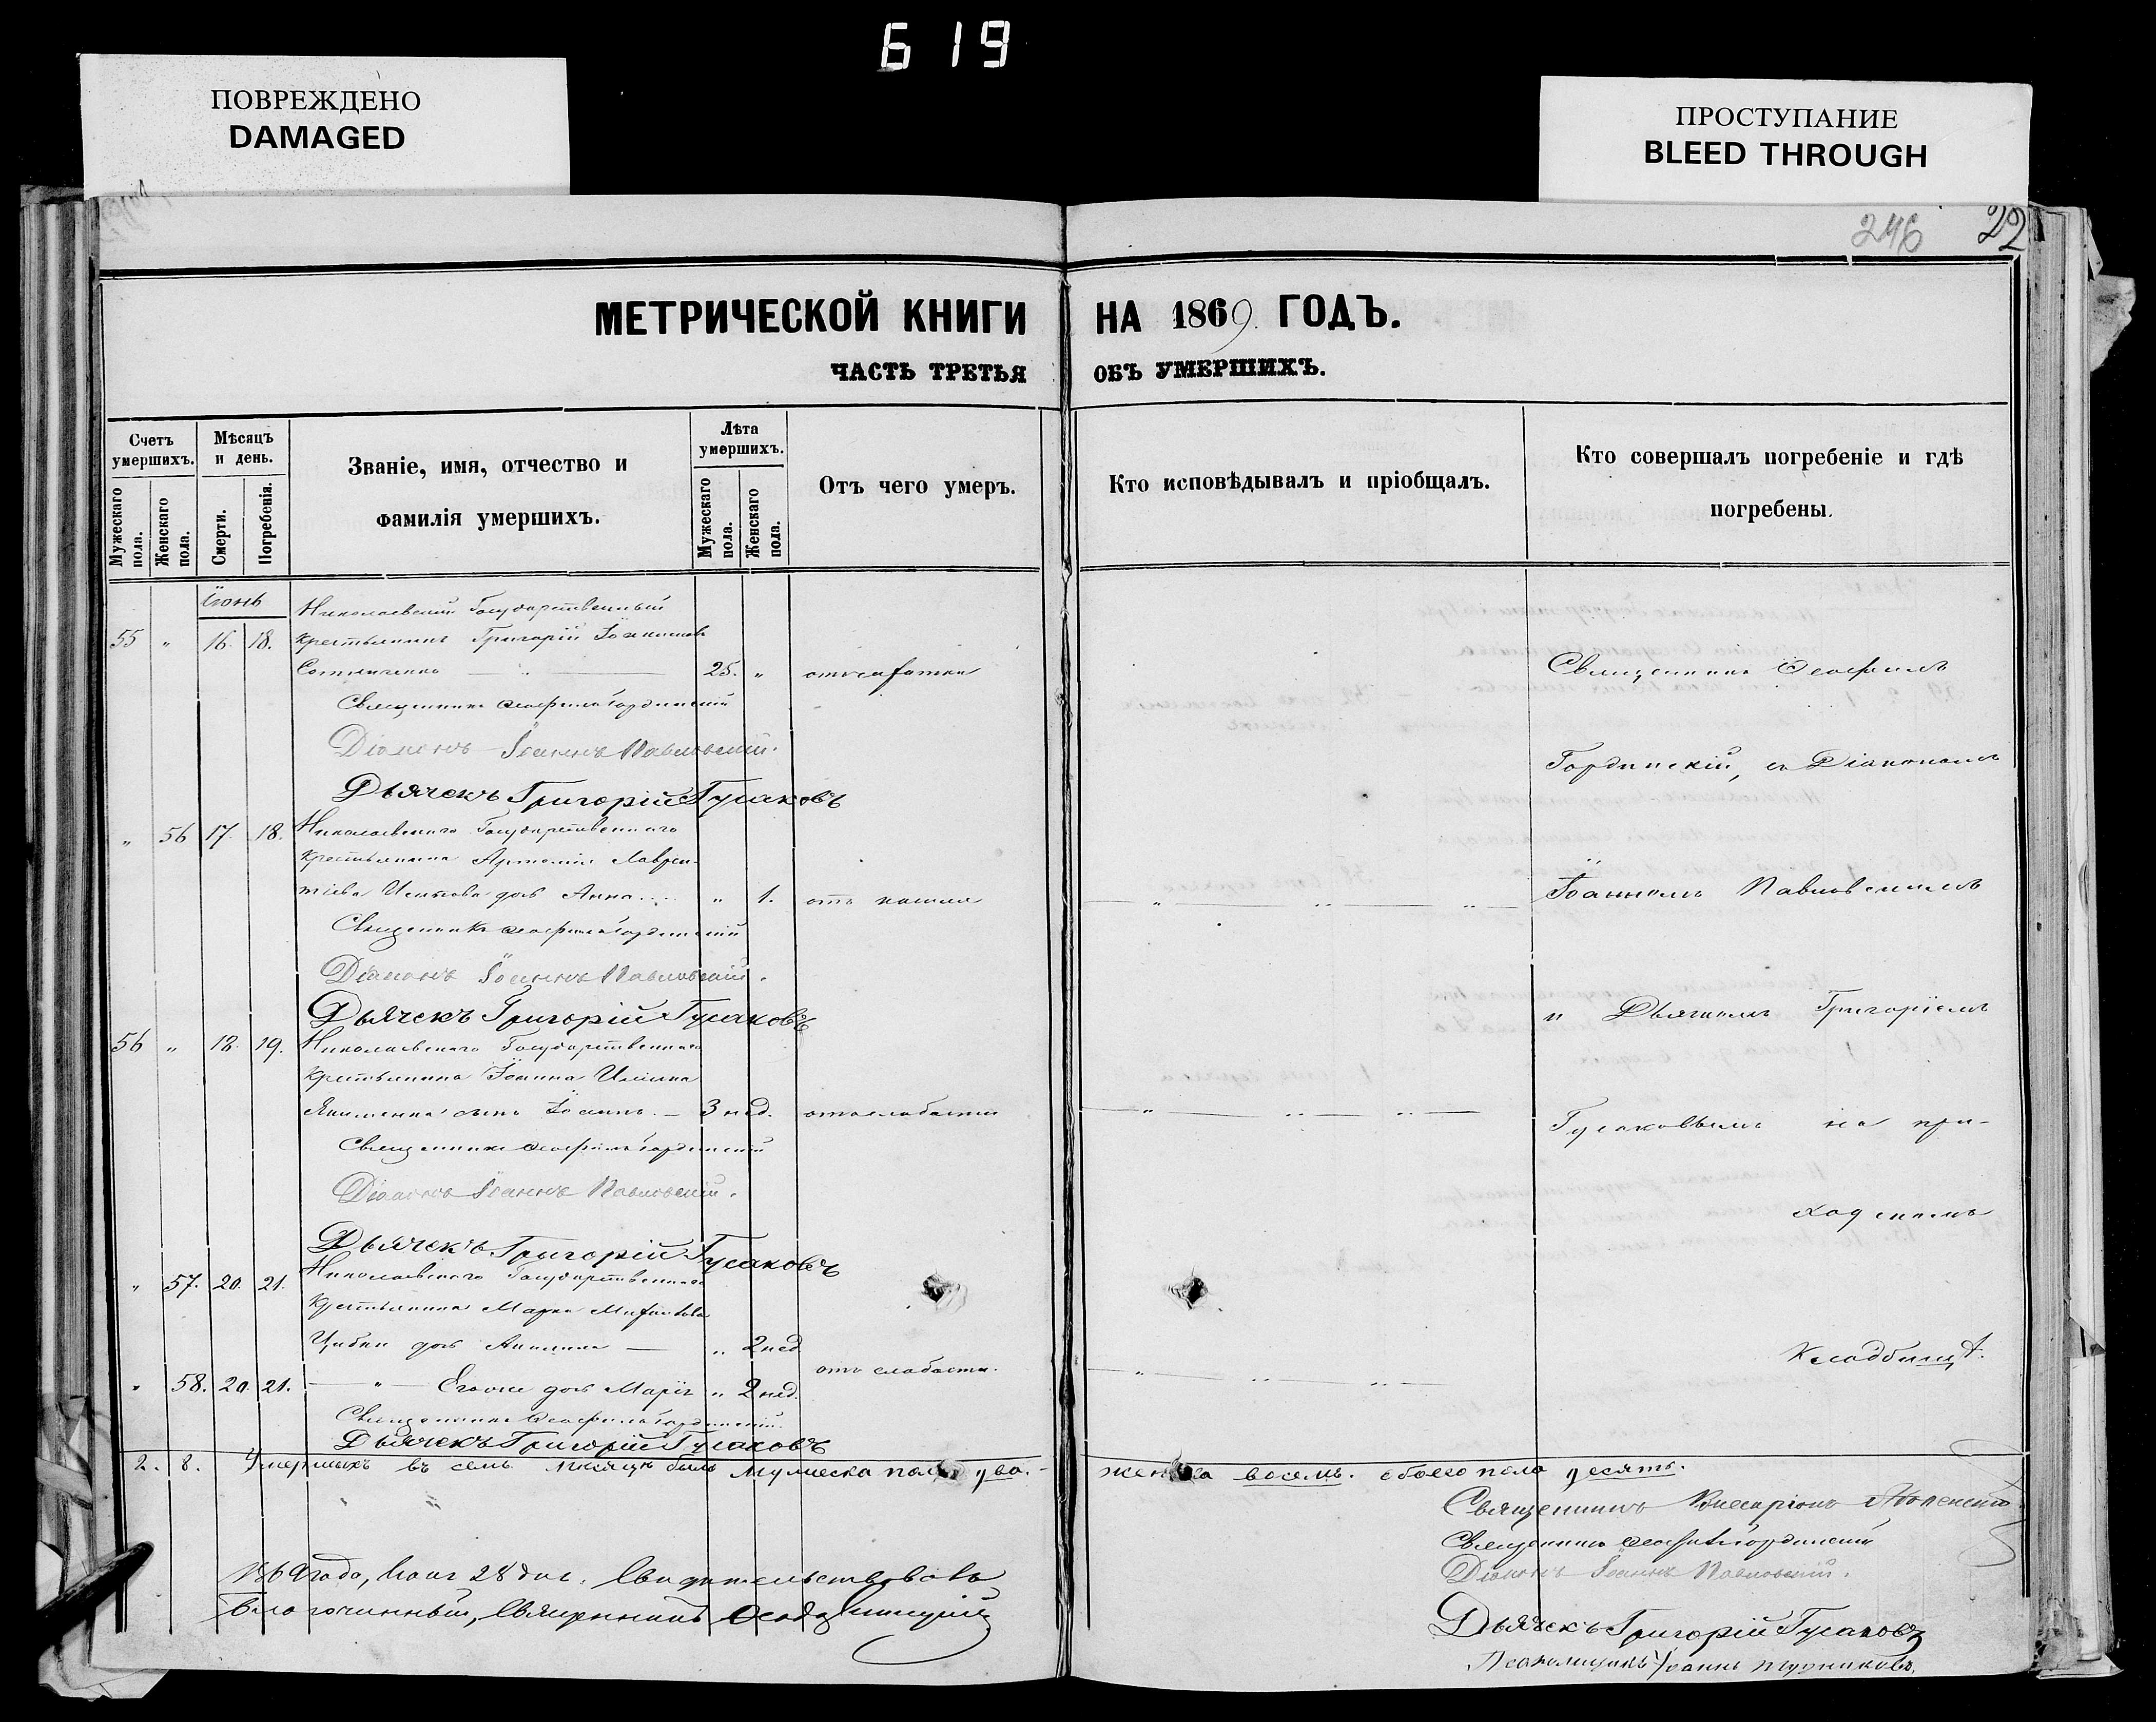 619
ПОВРЕЖДЕНО
DAMAGED
ПРОСТУПАНИЕ
BLEED THROUGH
246 22
МЕТРИЧЕСКОЙ КНИГИ НА 1869 ГОДЪ.
ЧАСТЬ ТРЕТЬЯ ОБЪ УМЕРШИХЪ.
Счетъ умершихъ.
Мужескаго пола.
Женскаго пола.
Мѣсяцъ и день.
Смерти.
Погребенія.
Званіе, имя, отчество и
фамилія умершихъ.
Лѣта умершихъ.
Мужескаго пола.
Женскаго пола.
Отъ чего умеръ.
Кто исповѣдывалъ и пріобщалъ.
Кто совершалъ погребеніе и гдѣ
погребены.
Іюнь
Николаевскій Государственный
55 " 16. 18. крестьянинъ Григорій
25. "
Священникъ Ѳеофилъ Гординскій
Діаконъ Іоаннъ Павловскій.
Дьячекъ Григорій Гусаковъ
" 56 17. 18. Николаевскаго Государственнаго
крестьянина Лаврен-
тіева дочь Анна " 1. отъ кашля
Священникъ Ѳеофилъ Гординскій
Діаконъ Іоаннъ Павловскій.
Дьячекъ Григорій Гусаковъ
56 " 18. 19. Николаевскаго Государственнаго
крестьянина Іоанна
Якименка сынъ Іоаннъ. — 3 нед. отъ слабости
Священникъ Ѳеофилъ Гординскій
Діаконъ Іоаннъ Павловскій.
Дьячекъ Григорій Гусаковъ
" 57. 20. 21. Николаевскаго Государственнаго
крестьянина Марка
дочь — " 2 нед
отъ слабости.
" 58. 20. 21. — " — дочь Марія " 2 нед.
Священникъ Ѳеофилъ Гординскій.
Дьячекъ Григорій Гусаковъ
Священникъ Ѳеофилъ
Гординскій, съ Діакономъ
Іоанномъ Павловскимъ
и Дьячкомъ Григоріемъ
Гусаковымъ на при-
ходскомъ
кладбищѣ.
2. 8. Умершихъ въ семъ мѣсяцѣ было мужеска пола два. — женска восемъ. обоего пола десять.
Священникъ Виссаріонъ
Священникъ Ѳеофилъ Гординскій
Діаконъ Іоаннъ Павловскій.
Дьячекъ Григорій Гусаковъ
Іоаннъ
1869 года, 28 дня. Свидѣтельствовалъ
Благочинный, Священникъ